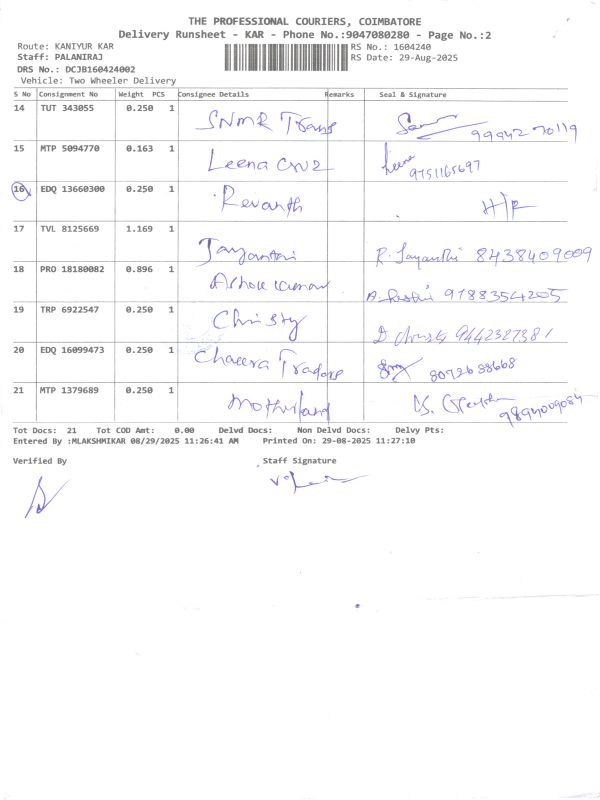 THE PROFESSIONAL COURIERS, COIMBATORE
Delivery Runsheet - KAR - Phone No.:9047080280 - Page No.:2
Route: KANIYUR KAR RS No.: 1604240
Staff: PALANIRAJ RS Date: 29-Aug-2025
DRS No.: DCJB160424002
Vehicle: Two Wheeler Delivery
S No Consignment No Weight PCS Consignee Details Remarks Seal & Signature
14 TUT 343055 0.250 1 SNMR Trans 99942 70119
15 MTP 5094770 0.163 1 Leena Cruz Leena 9751165697
16 EDQ 13660300 0.250 1 Revanth H/R
17 TVL 8125669 1.169 1 Jayanthi R. Jayanthi 8438409009
18 PRO 18180082 0.896 1 Ashok kumar 9788354205
19 TRP 6922547 0.250 1 Christy D Christy 9442327381
20 EDQ 16099473 0.250 1 Traders 8072638668
21 MTP 1379689 0.250 1 Motherland 9894009084
Tot Docs: 21 Tot COD Amt: 0.00 Delvd Docs: Non Delvd Docs: Delvy Pts:
Entered By :MLAKSHMIKAR 08/29/2025 11:26:41 AM Printed On: 29-08-2025 11:27:10
Verified By Staff Signature